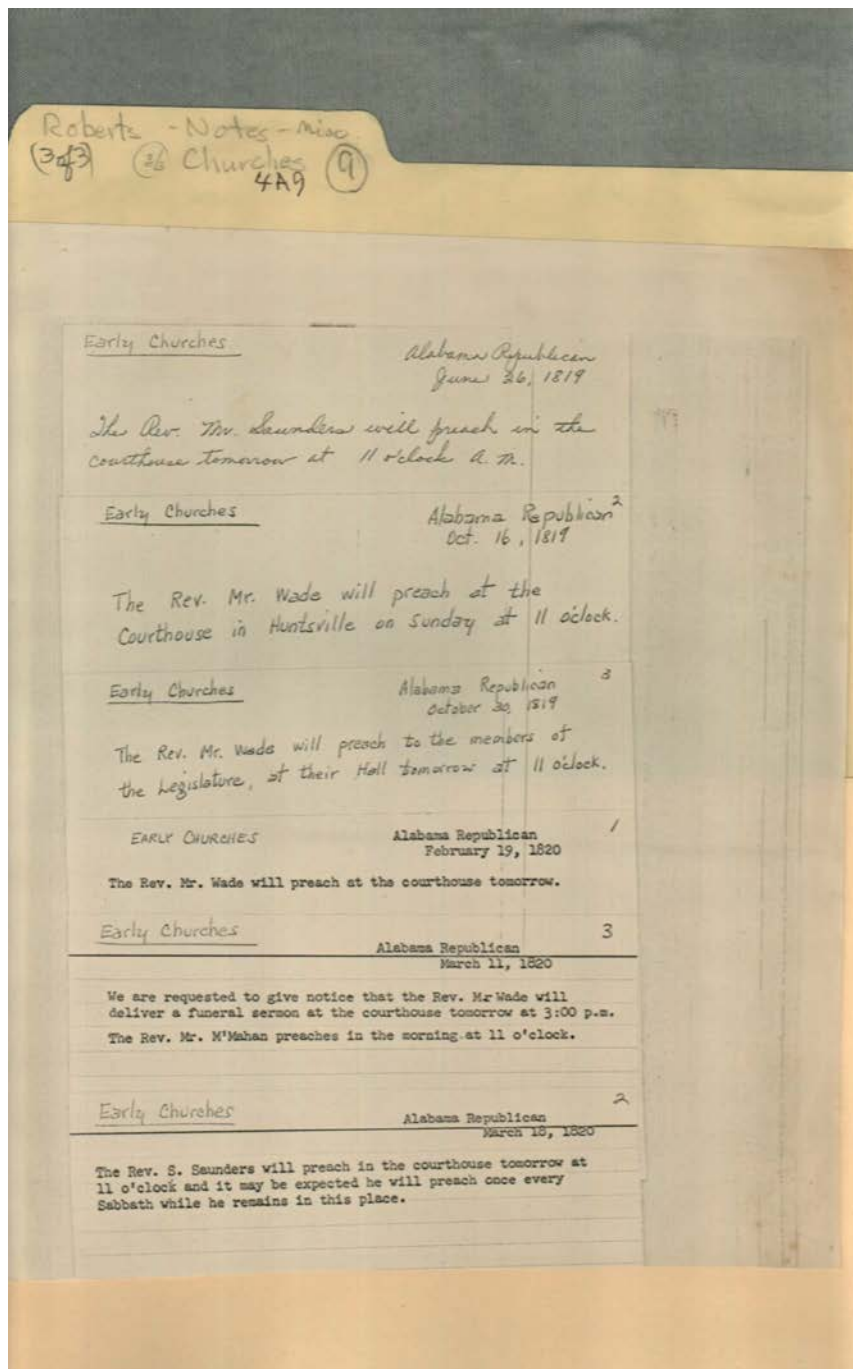 Roberts - Notes - Misc
(3 of 3) (26) Churches (9)
4A9
Early Churches
Alabama Republican
June 26, 1819
The Rev. Mr. Saunders will preach in the
courthouse tomorrow at 11 o'clock A.M.
Early Churches
Alabama Republican 2
Oct. 16, 1819
The Rev. Mr. Wade will preach at the
Courthouse in Huntsville on Sunday at 11 o'clock.
Early Churches
Alabama Republican 3
October 30, 1819
The Rev. Mr. Wade will preach to the members of
the Legislature, at their Hall tomorrow at 11 o'clock.
EARLY CHURCHES
Alabama Republican 1
February 19, 1820
The Rev. Mr. Wade will preach at the courthouse tomorrow.
Early Churches 3
Alabama Republican
March 11, 1820
We are requested to give notice that the Rev. Mr Wade will
deliver a funeral sermon at the courthouse tomorrow at 3:00 p.m.
The Rev. Mr. M'Mahan preaches in the morning at 11 o'clock.
Early Churches 2
Alabama Republican
March 18, 1820
The Rev. S. Saunders will preach in the courthouse tomorrow at
11 o'clock and it may be expected he will preach once every
Sabbath while he remains in this place.